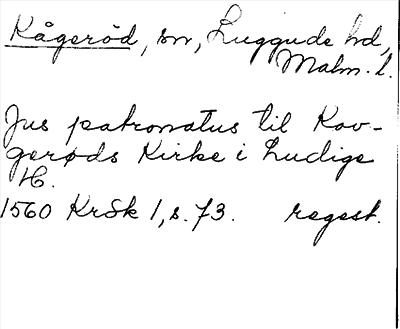 Kågeröd, sn, Luggude hd,
Malm. l.
Jus patronatus til Kov-
gerøds Kirke i Ludige
H.
1560 KrSk 1, s. 73. regest.